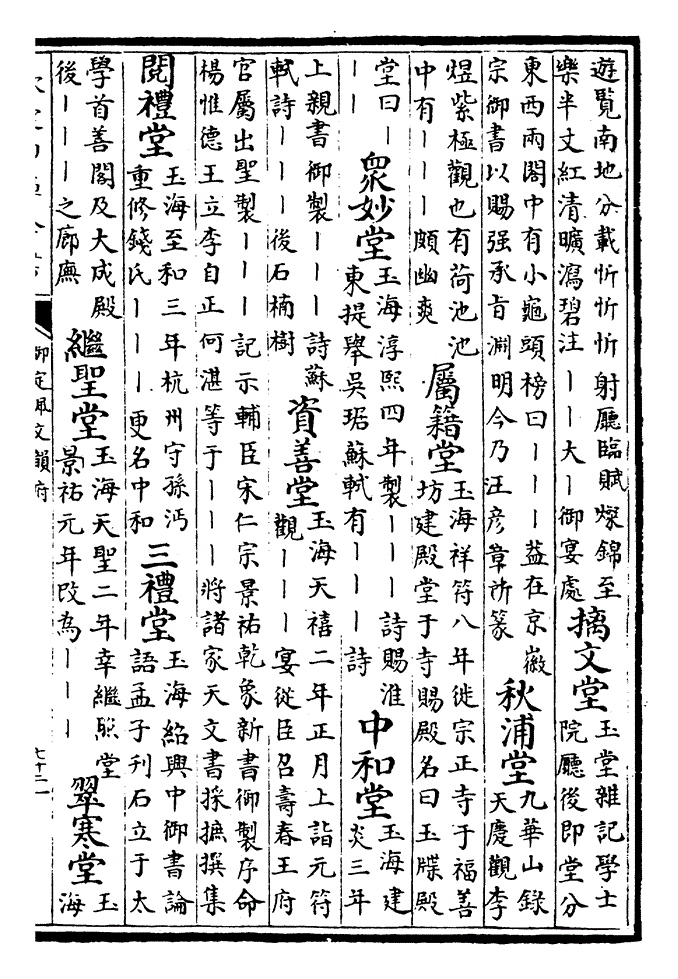 遊覽南地分載忻忻忻射廳臨賦燦錦至
樂半丈紅清曠瀉碧注｜｜大｜御宴處
摛文堂
玉堂雜記學士
院廳後即堂分
東西兩閣中有小龜頭榜曰｜｜｜益在京徽
宗御書以賜强承旨淵明今乃汪彦章所篆
秋浦堂
九華山錄
天慶觀李
煜紫極觀也有荷池池
中有｜｜｜頗幽爽
屬籍堂
玉海祥符八年徙宗正寺于福善
坊建殿堂于寺賜殿名曰玉牒殿
堂曰｜
｜｜
衆妙堂
玉海淳熙四年製｜｜｜詩賜淮
東提舉吳琚蘇軾有｜｜｜詩
中和堂
玉海建
炎三年
上親書御製｜｜｜詩蘇
軾詩｜｜｜後石楠樹
資善堂
玉海天禧二年正月上詣元符
觀｜｜｜宴從臣召壽春王府
官屬出聖製｜｜｜記示輔臣宋仁宗景祐乾象新書御製序命
楊惟德王立李自正何湛等于｜｜｜將諸家天文書採摭撰集
閱禮堂
玉海至和三年杭州守孫沔
重修錢氏｜｜｜更名中和
三禮堂
玉海紹興中御書論
語孟子刊石立于太
學首善閣及大成殿
後｜｜｜之廊廡
繼聖堂
玉海天聖二年幸繼照堂
景祐元年改為｜｜｜
翠寒堂
玉
海
御定佩文韻府
七十二